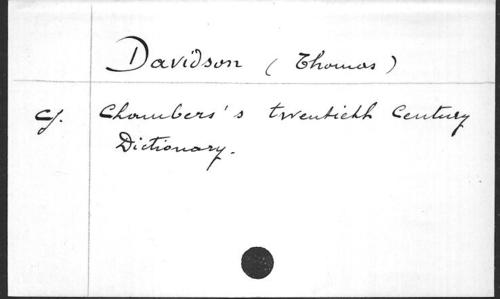 Davidson (Thomas)
Cf. Chambers's twentieth Century
Dictionary.